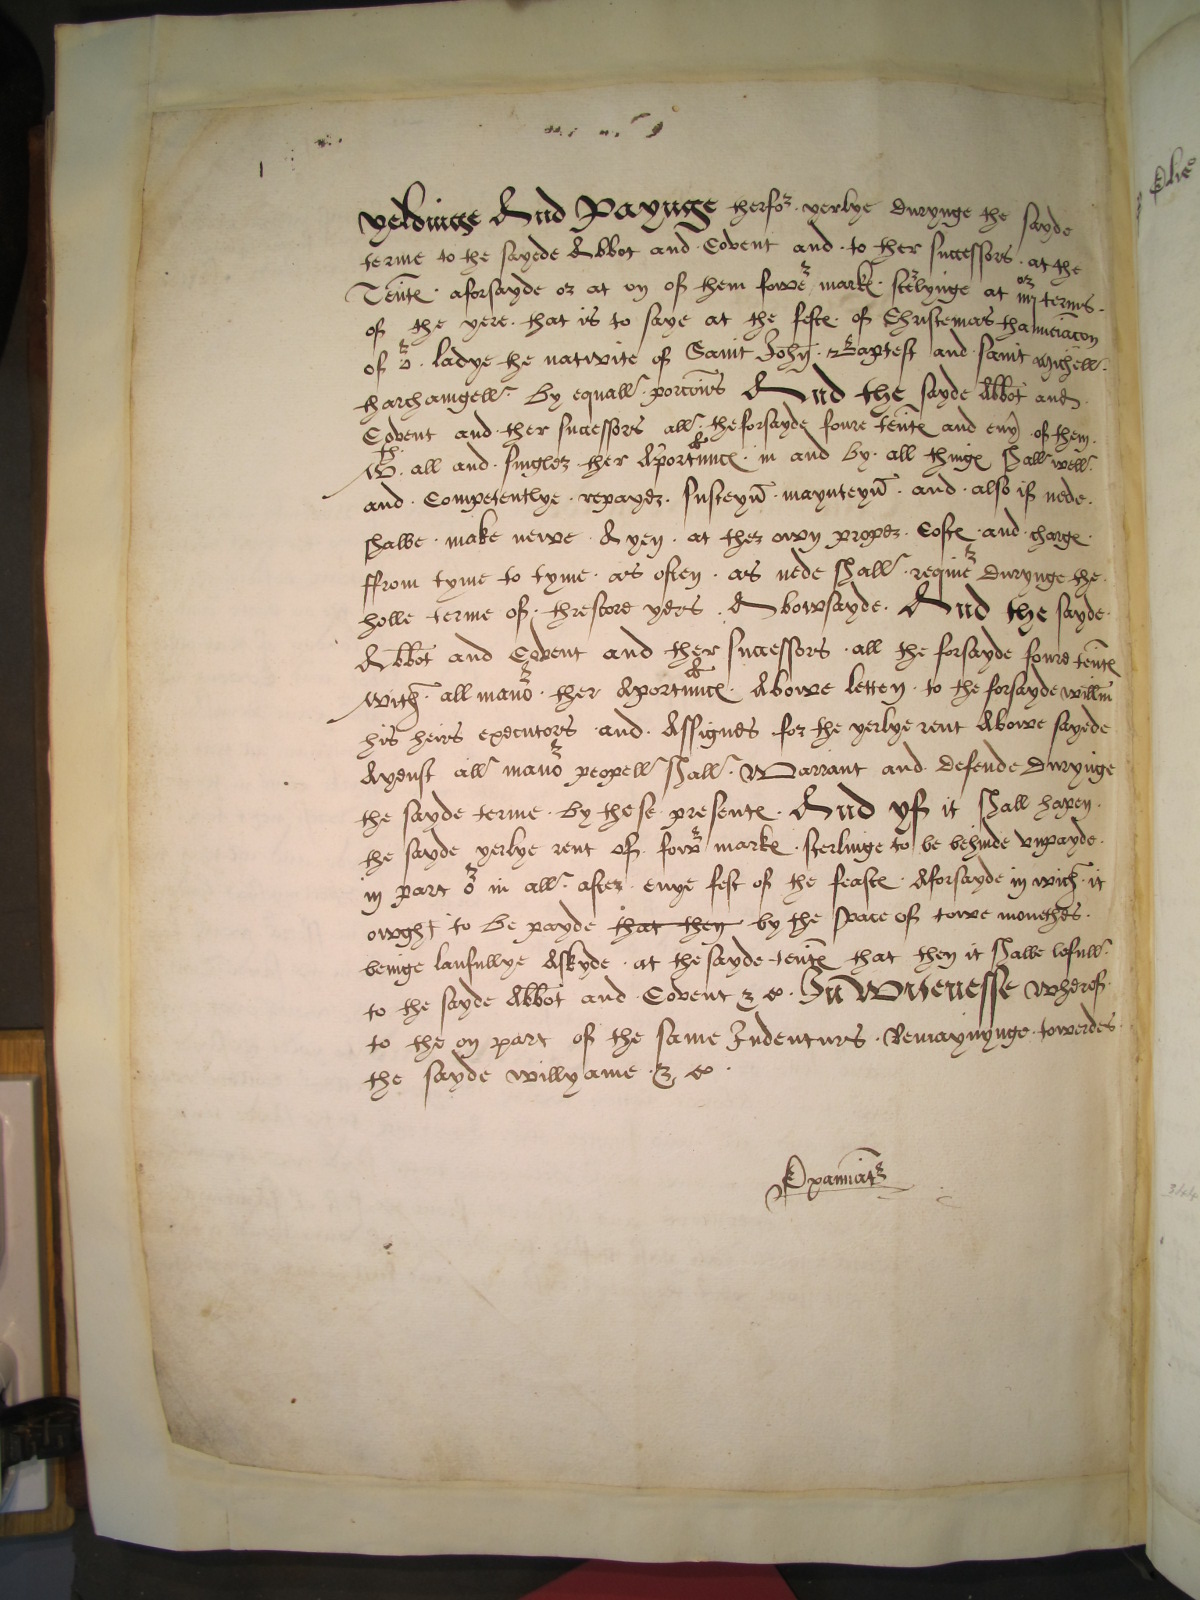 yeldinge And Payynge therfor yerlye durynge the sayde
terme to the sayede Abbot and Covent and to ther successors at the
Tent℮ aforsayde or at on of them fowr mark℮ sterlynge at iiij or termes
of the yere that is to saye at the fest℮ of Christemas thanuciacon
of or ladye the nativite of Saint John Baptest and saint Michell
tharchaingell By equall porcions And the sayde Abbot and
Covent and ther successors all theforsayde foure tent℮ and eny of them
Wth all and singler ther Aportinnc℮ in and by all thing℮ shall well
and Competentlye repayer susteyn maynteyn and also if nede
shalbe make newe Ayen at ther own proper Cost℮ and charg℮
ffrom tyme to tyme as often as nede shall require durynge the
holle terme of threscore yers Abowsayde And the sayde
Abbot and Covent and ther successors all the forsayde foure tent℮
with all maner ther Aportinnc℮ Abowe letten to the forsayde willm
his heirs executors and Assignes for the yerlye rent Abowe sayede
Ayenst all maner peopell shall Warrant and defende durynge
the sayde terme By these present℮ And yf it shall hapen
the sayde yerlye rent of fowr mark℮ sterlinge to be behinde unpayde
in part or in all after enye fest of the feast℮ Aforsayde in wich it
owght to be payde that then by the space of towe monethes
beinge laufullye Askyde at the sayde tent℮ that then it shalbe lofull
to the sayde Abbot and Covent &c In Witenesse Wherof
to the on part of the same Indenturs Remaynynge towerdes
the sayde willyame &c
Examiatr